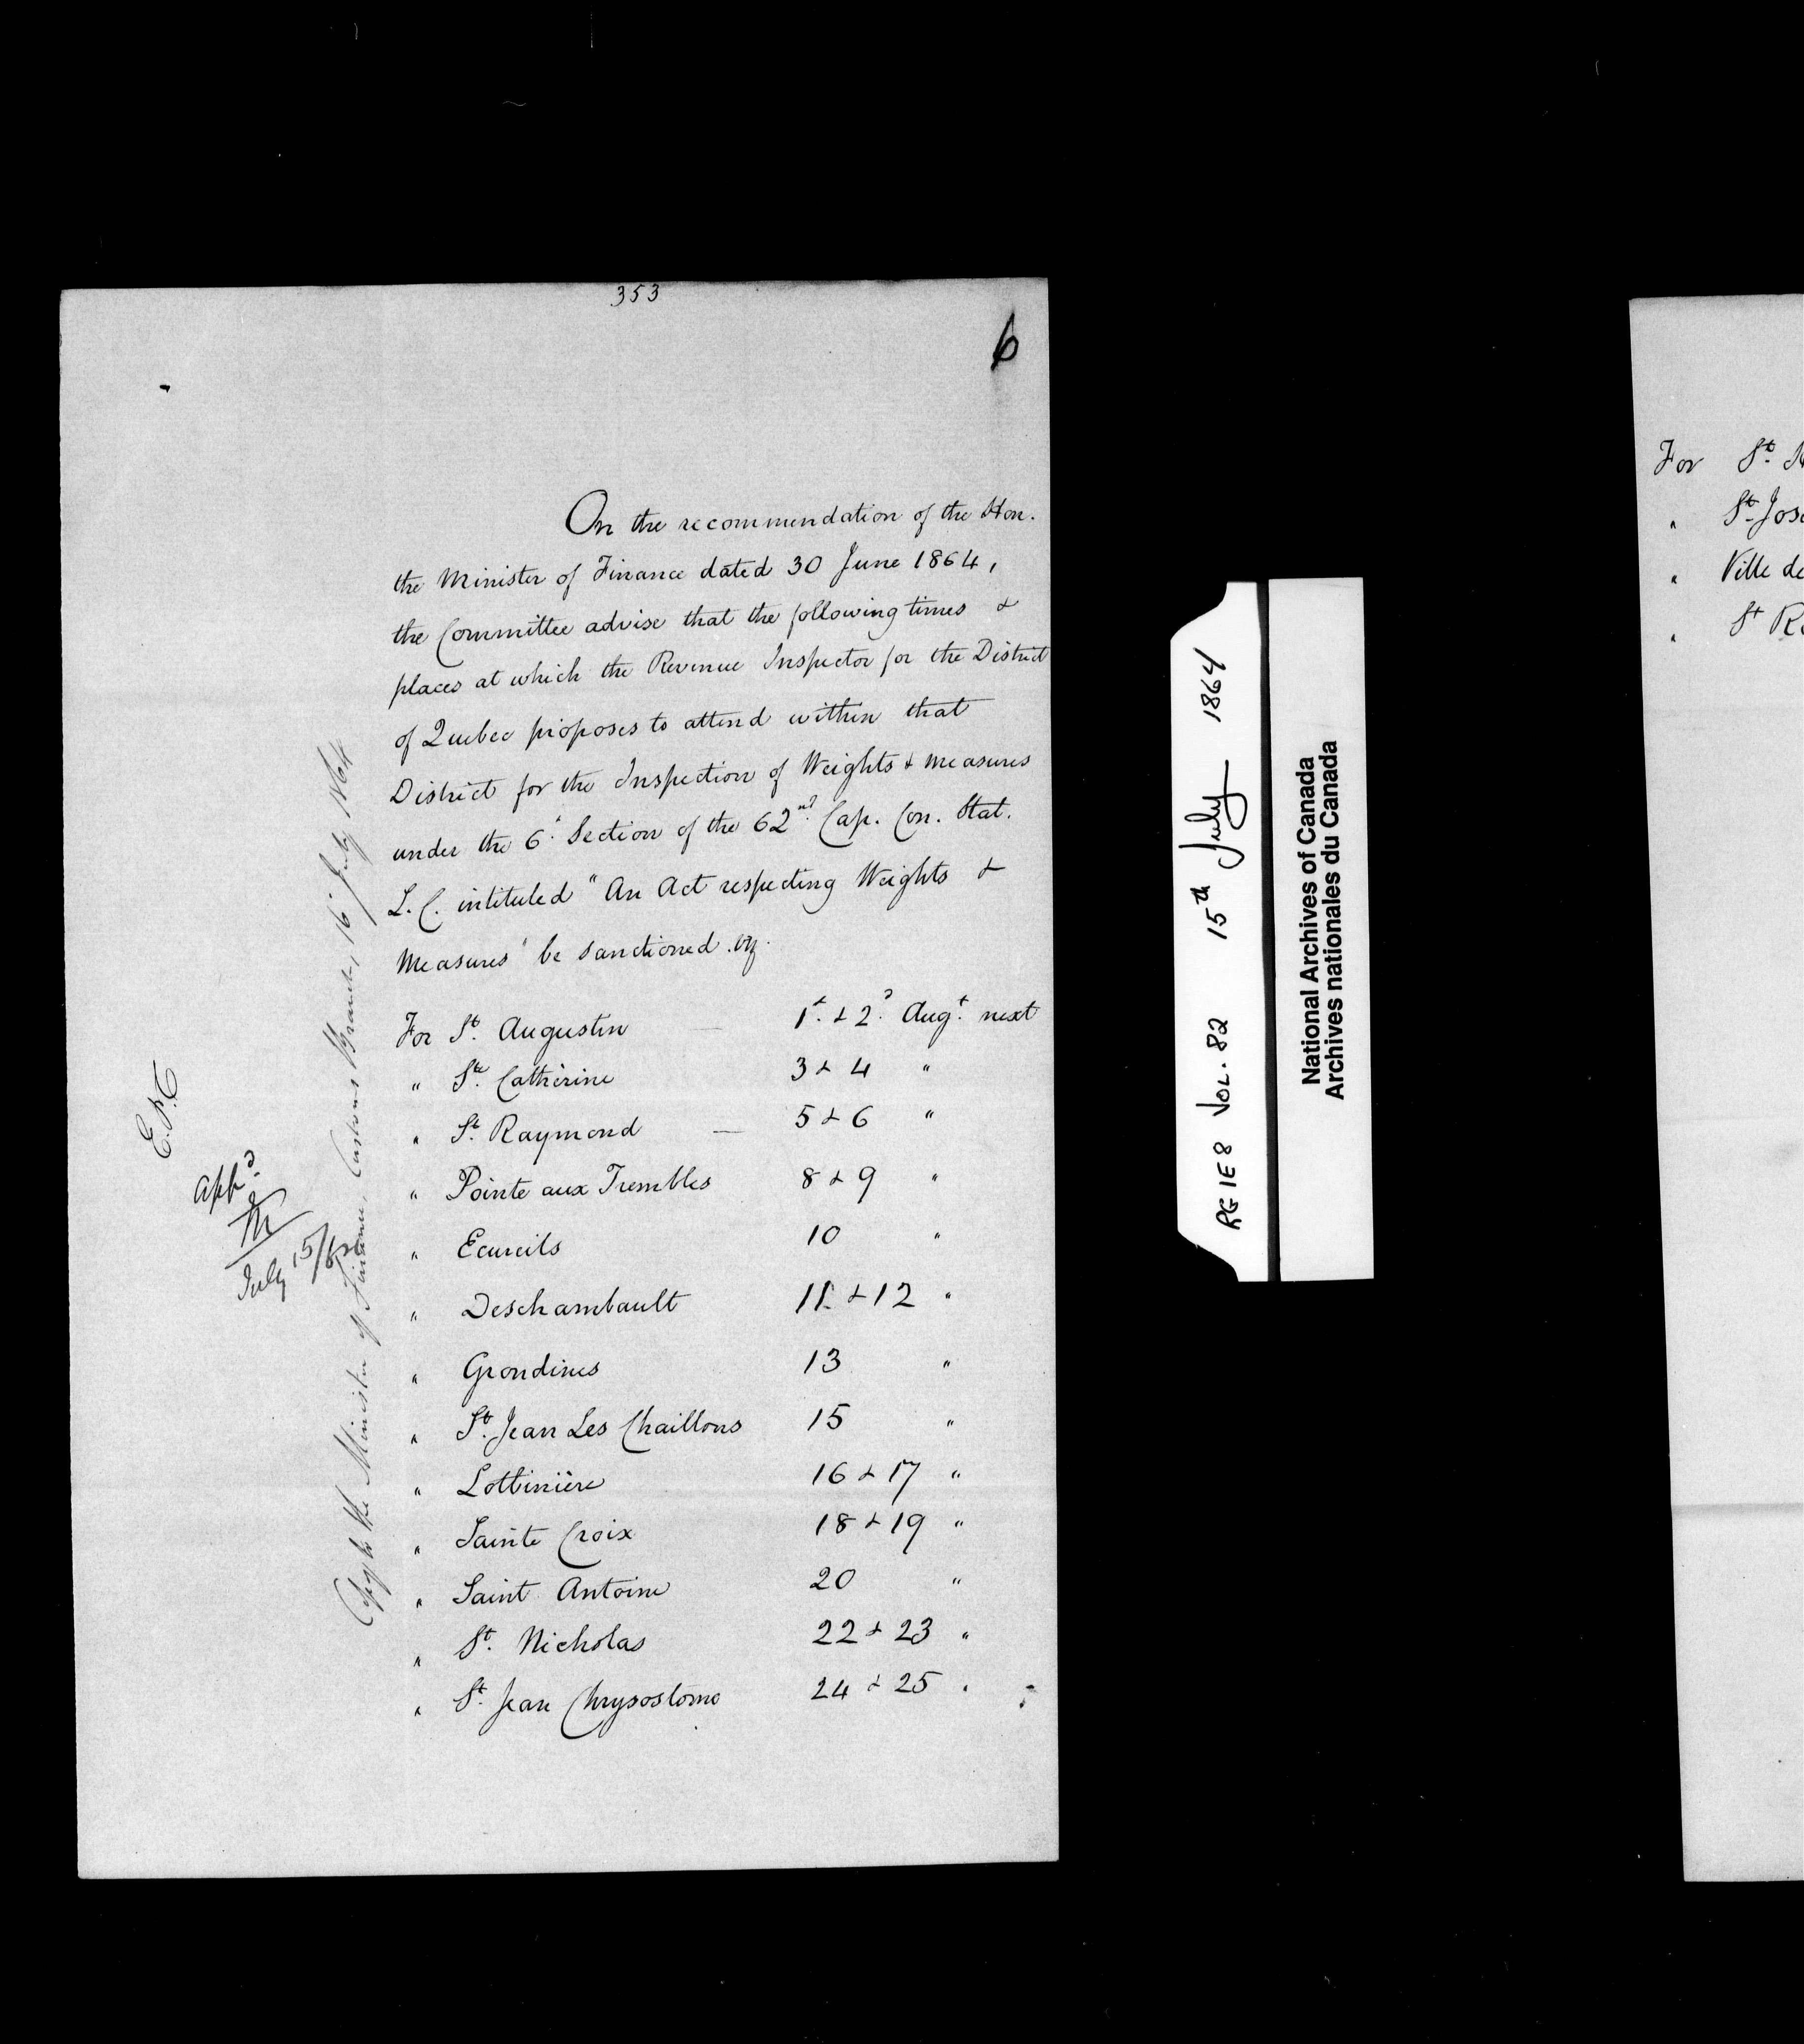 353
6
On the recommendation of the Hon.
the Minister of Finance dated 30 June 1864,
the Committee advise that the following times &
places at which the Revenue Inspector for the District
of Quebec proposes to attend within that
District for the Inspection of Weights & Measures
under the 6th Section of the 62nd Cap. Con. Stat.
L. C. intituled "An Act respecting Weights &
Measures" be sanctioned viz.
For St. Augustin — 1st. & 2d. Augt. next
" Ste. Catherine 3 & 4 "
" St. Raymond — 5 & 6 "
" Pointe aux Trembles 8 & 9 "
" Ecureils 10 "
" Deschambault 11 & 12 "
" Grondines 13 "
" St. Jean Les Chaillons 15 "
" Lotbinière 16 & 17 "
" Sainte Croix 18 & 19 "
" Saint Antoine 20 "
" St. Nicholas 22 & 23 "
" St. Jean Chrysostome 24 & 25 "
Copy to the Minister of Finance, Customs Branch, 16 July 1864
Appd.
July 15/64
RG 1 E 8 VOL. 82 15th July 1864
National Archives of Canada
Archives nationales du Canada
For St.
" St. Jos
" Ville de
" St R